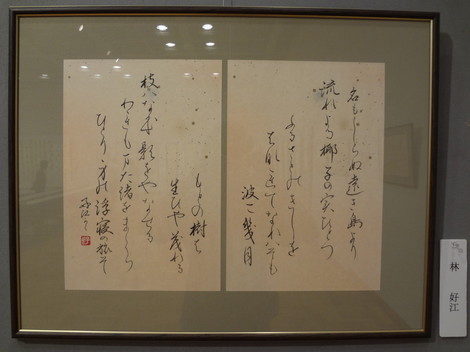 名もしらぬ遠き島より
流れよる椰子の実ひとつ
ふるさとのきしを
はなれてなれはそも
波に幾月
もとの樹は
生ひや茂れる
枝はなほ影をやなせる
われもまた渚をまくら
ひとり身の浮寝の旅ぞ
林 好江